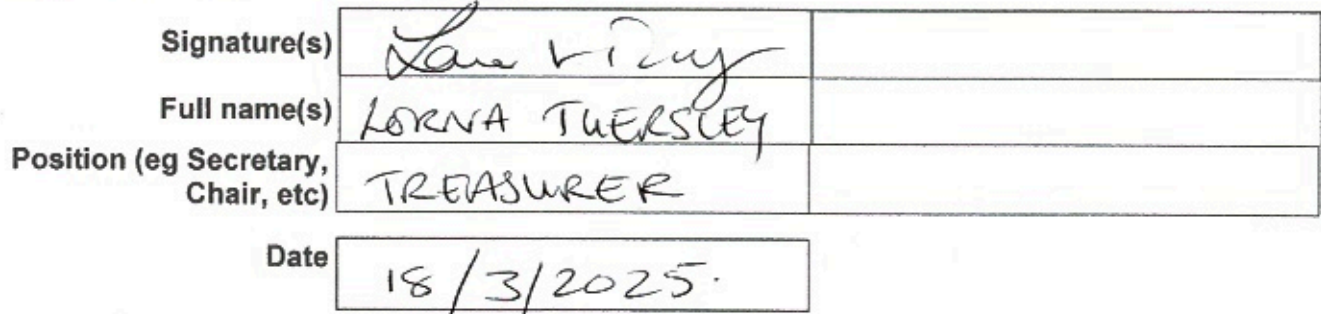 Signature(s)
Full name(s) LORNA TUERSLEY
Position (eg Secretary,
Chair, etc) TREASURER
Date 18/3/2025.